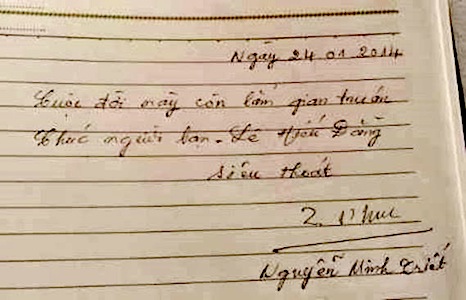 Ngày 24 01 2014
Cuộc đời này còn lắm gian truân
Chúc người bạn - Lê Hiếu Đằng
siêu thoát
Nguyễn Minh Triết